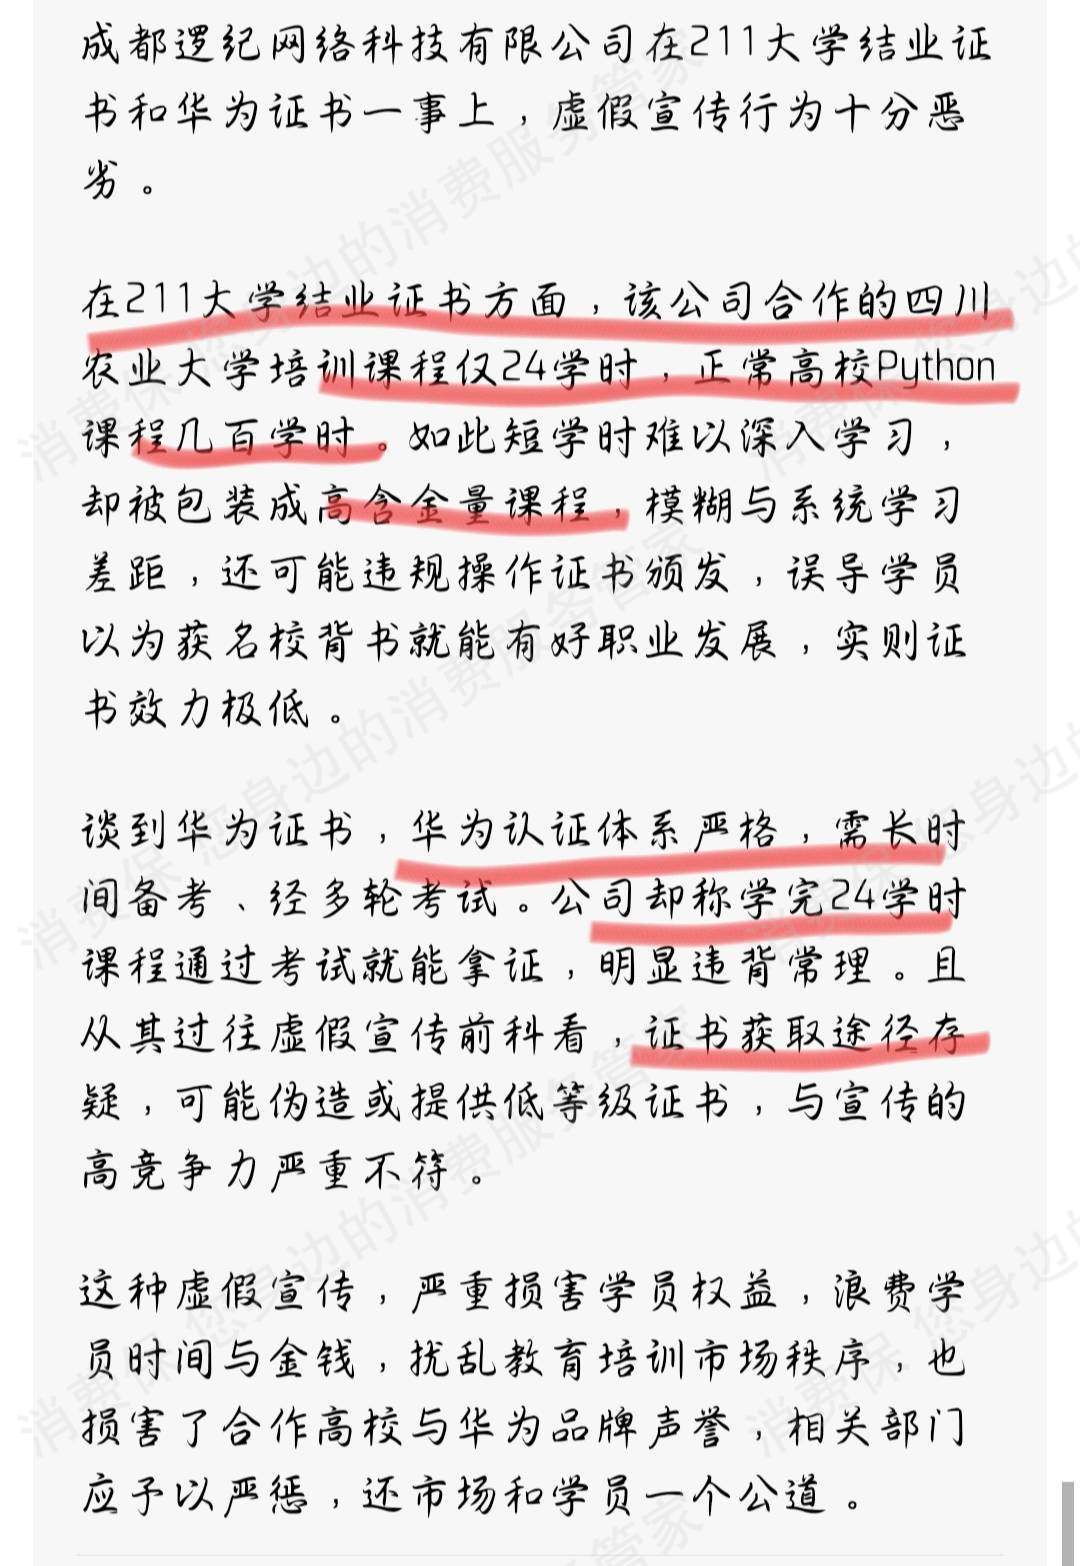 成都逻纪网络科技有限公司在211大学结业证
书和华为证书一事上，虚假宣传行为十分恶
劣。
在211大学结业证书方面，该公司合作的四川
农业大学培训课程仅24学时，正常高校Python
课程几百学时。如此短学时难以深入学习，
却被包装成高含金量课程，模糊与系统学习
差距，还可能违规操作证书颁发，误导学员
以为获名校背书就能有好职业发展，实则证
书效力极低。
谈到华为证书，华为认证体系严格，需长时
间备考、经多轮考试。公司却称学完24学时
课程通过考试就能拿证，明显违背常理。且
从其过往虚假宣传前科看，证书获取途径存
疑，可能伪造或提供低等级证书，与宣传的
高竞争力严重不符。
这种虚假宣传，严重损害学员权益，浪费学
员时间与金钱，扰乱教育培训市场秩序，也
损害了合作高校与华为品牌声誉，相关部门
应予以严惩，还市场和学员一个公道。
消费保 您身边的消费服务管家